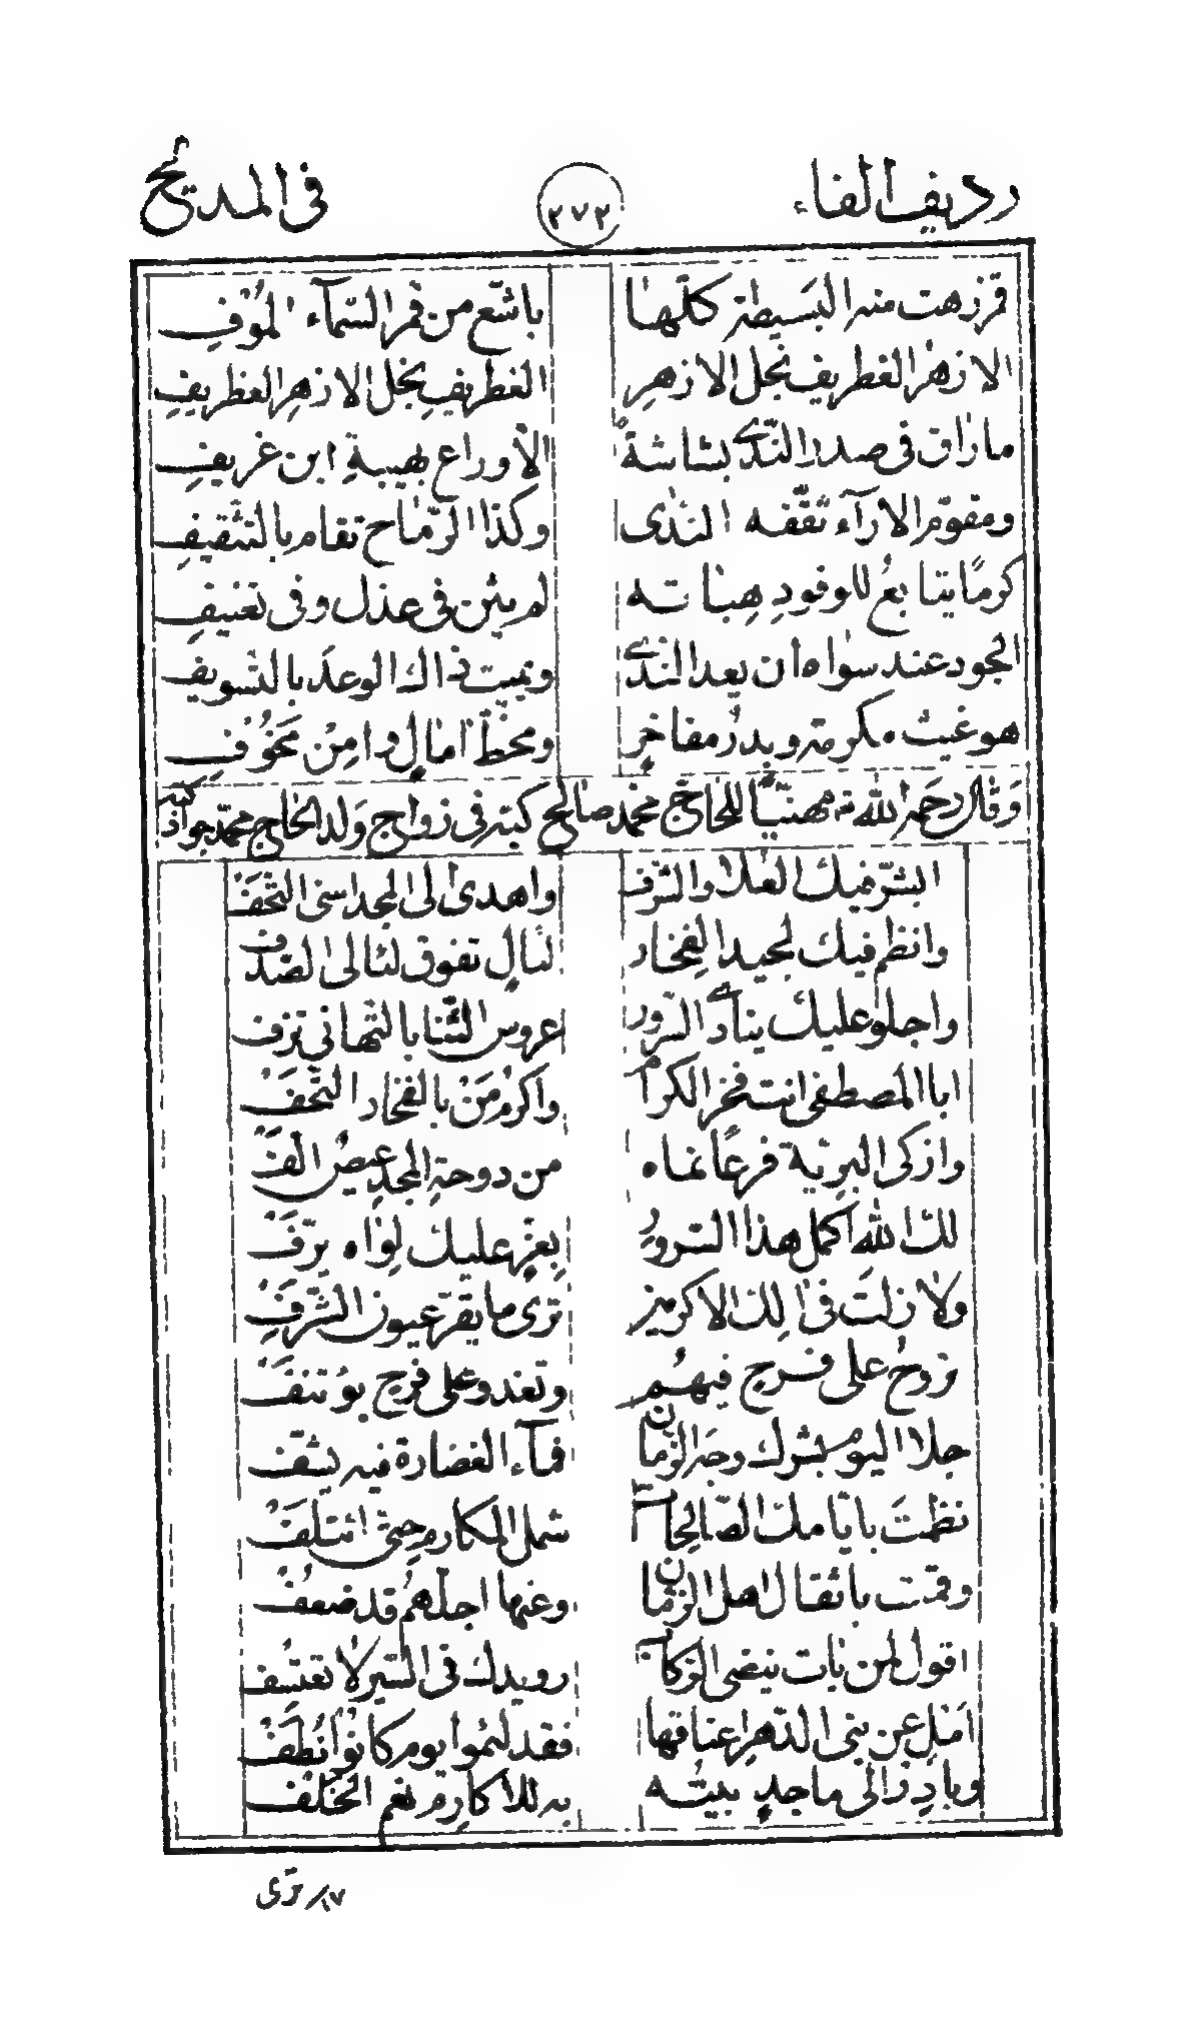 رديف الفاء ٢٧٢ في المديح
قمر زهت منه البسيطة كلّها باشّع من قمر السّماء الموُفِ
الازهر الغطريف نجل الازهرِ الغطريفِ نجل الازهرِ الغطريفِ
ما راق في صدر النّدى بشاشةً الّا وراع بهيبةِ ابن غريفِ
ومقوّم الارآء ثقّفه الندى وكذا الرّماح تقام بالتثقيفِ
كرمًا يتابعُ للوفودِ هباته لم يثن في عذل وفي تعنيفِ
الجود عند سواه ان يعد الندى ويميت ذاك الوعد بالتسويف
هو غيث مكرمة وبدرُ مفاخرٍ ومحطّ امالٍ وامِنْ مَخوُفِ
وَقال رحمه الله مهنّيًا للحاج محمد صالح كبه في زواج ولد الحاج محمد جواد كبه
البشّر فيك العلا والشرف واهدى الى المجد اسنى التّحَفْ
وانظم فيك لجيد الفخار لئالٍ تفوق لئالي الصّدف
واجلو عليك بنادى السّرور عروس الثّنا بالتّهاني تزف
ابا المصطفى انت فخر الكرام واكرمُ مَنْ بالفخار التحفْ
وازكى البريّة فرعًا نماه من دوحةِ المجدِ عيصُ الَفّ
لك الله اكمل هذا السّرورُ بِعزٍ عليك لِواه يرّفْ
ولا زلتَ في الك الاكرمين ترى ما يقرّ عيون الشّرفْ
تروحُ على فرج فيهُم وتغدو على فرج يؤتنفْ
جلا اليوم بشرك وجه الزمان فمآء الغضارة فيه يشّف
نظمتَ بايّامك الصّالحات شمل المكارم حتى ائتلفْ
وقمت باثقال اهل الزمان وعنها اجلّهمُ قد ضعفْ
اقول لمن بات ينضى الركاب رويدك في السّير لا تعتسف
امَل عن بني الدّهرِ اعناقها فقد لئموا يوم كانوا نُطَفْ
وبادِر الى ماجدٍ بيتُه به للاكارم نعم الخَلفْ
١٧/ ترى